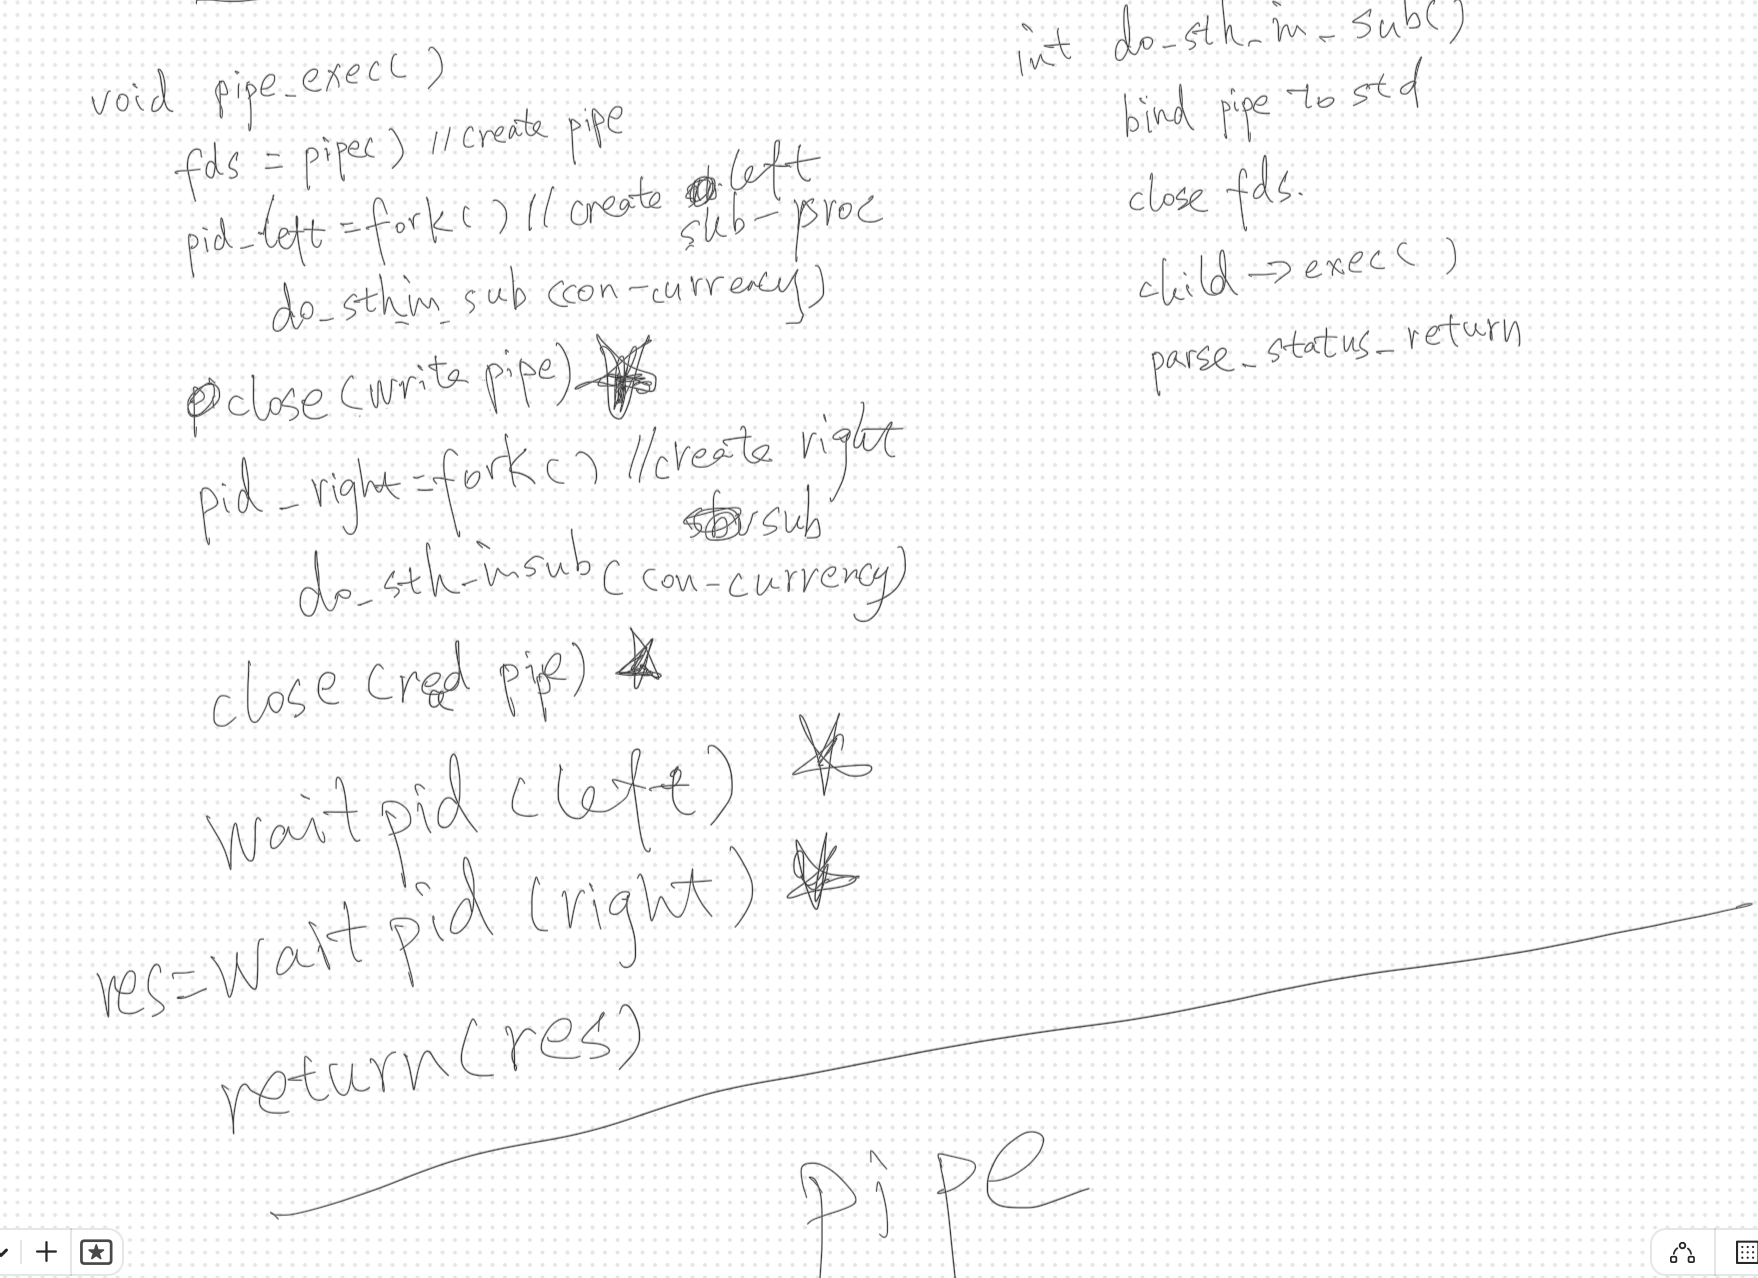 void pipe_exec()
fds = pipe() //create pipe
pid_left = fork() //create left
sub-proc
do_sth_in_sub (con-currency)
close (write pipe)
pid_right = fork() //create right
sub
do_sth_insub (con-currency)
close (read pipe)
waitpid (left)
res = waitpid (right)
return (res)
pipe
int do_sth_in_sub()
bind pipe to std
close fds.
child -> exec()
parse_status_return